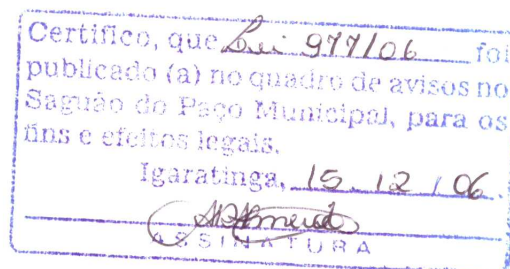 Certifico, que Lei 977/06 foi
publicado (a) no quadro de avisos no
Saguão do Paço Municipal, para os
fins e efeitos legais.
Igaratinga, 15. 12 / 06.
ASSINATURA